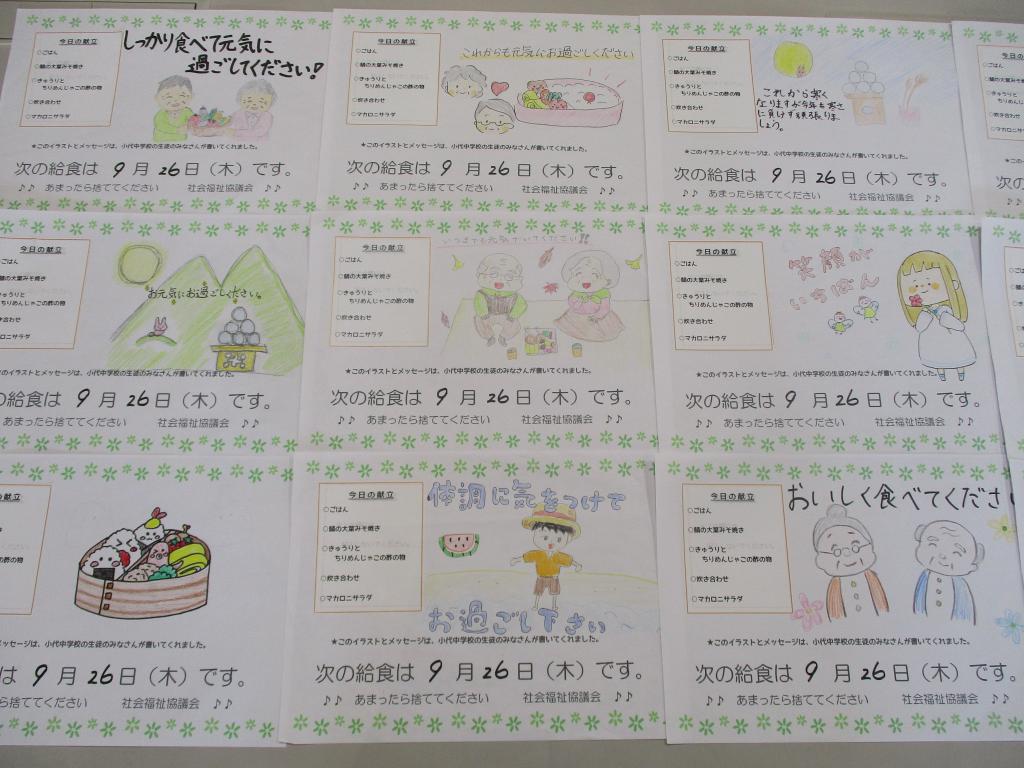 今日の献立
○ごはん
○鯖の大葉みそ焼き
○きゅうりと
ちりめんじゃこの酢の物
○炊き合わせ
○マカロニサラダ
しっかり食べて元気に
過ごしてください!
★このイラストとメッセージは、小代中学校の生徒のみなさんが書いてくれました。
次の給食は 9月 26日(木)です。
♪♪ あまったら捨ててください 社会福祉協議会 ♪♪
今日の献立
○ごはん
○鯖の大葉みそ焼き
○きゅうりと
ちりめんじゃこの酢の物
○炊き合わせ
○マカロニサラダ
これからも元気にお過ごしください
★このイラストとメッセージは、小代中学校の生徒のみなさんが書いてくれました。
次の給食は 9月 26日(木)です。
♪♪ あまったら捨ててください 社会福祉協議会 ♪♪
今日の献立
○ごはん
○鯖の大葉みそ焼き
○きゅうりと
ちりめんじゃこの酢の物
○炊き合わせ
○マカロニサラダ
これから寒く
なりますが今年も寒さ
に負けず頑張りま
しょう。
★このイラストとメッセージは、小代中学校の生徒のみなさんが書いてくれました。
次の給食は 9月 26日(木)です。
♪♪ あまったら捨ててください 社会福祉協議会 ♪♪
今日の献立
○ごはん
○鯖の大葉みそ焼き
○きゅうりと
ちりめんじゃこの酢の物
○炊き合わせ
○マカロニサラダ
お元気にお過ごしください。
★このイラストとメッセージは、小代中学校の生徒のみなさんが書いてくれました。
の給食は 9月 26日(木)です。
あまったら捨ててください 社会福祉協議会 ♪♪
今日の献立
○ごはん
○鯖の大葉みそ焼き
○きゅうりと
ちりめんじゃこの酢の物
○炊き合わせ
○マカロニサラダ
いつまでも元気でいてください!!
★このイラストとメッセージは、小代中学校の生徒のみなさんが書いてくれました。
次の給食は 9月 26日(木)です。
♪♪ あまったら捨ててください 社会福祉協議会 ♪♪
今日の献立
○ごはん
○鯖の大葉みそ焼き
○きゅうりと
ちりめんじゃこの酢の物
○炊き合わせ
○マカロニサラダ
笑顔が
いちばん
★このイラストとメッセージは、小代中学校の生徒のみなさんが書いてくれました。
次の給食は 9月 26日(木)です。
♪♪ あまったら捨ててください 社会福祉協議会 ♪♪
メッセージは、小代中学校の生徒のみなさんが書いてくれました。
は 9月 26日(木)です。
捨ててください 社会福祉協議会 ♪♪
今日の献立
○ごはん
○鯖の大葉みそ焼き
○きゅうりと
ちりめんじゃこの酢の物
○炊き合わせ
○マカロニサラダ
体調に気をつけて
お過ごし下さい
★このイラストとメッセージは、小代中学校の生徒のみなさんが書いてくれました。
次の給食は 9月 26日(木)です。
♪♪ あまったら捨ててください 社会福祉協議会 ♪♪
今日の献立
○ごはん
○鯖の大葉みそ焼き
○きゅうりと
ちりめんじゃこの酢の物
○炊き合わせ
○マカロニサラダ
おいしく食べてくださ
★このイラストとメッセージは、小代中学校の生徒のみなさんが書いてくれました。
次の給食は 9月 26日(木)です。
♪♪ あまったら捨ててください 社会福祉協議会 ♪♪